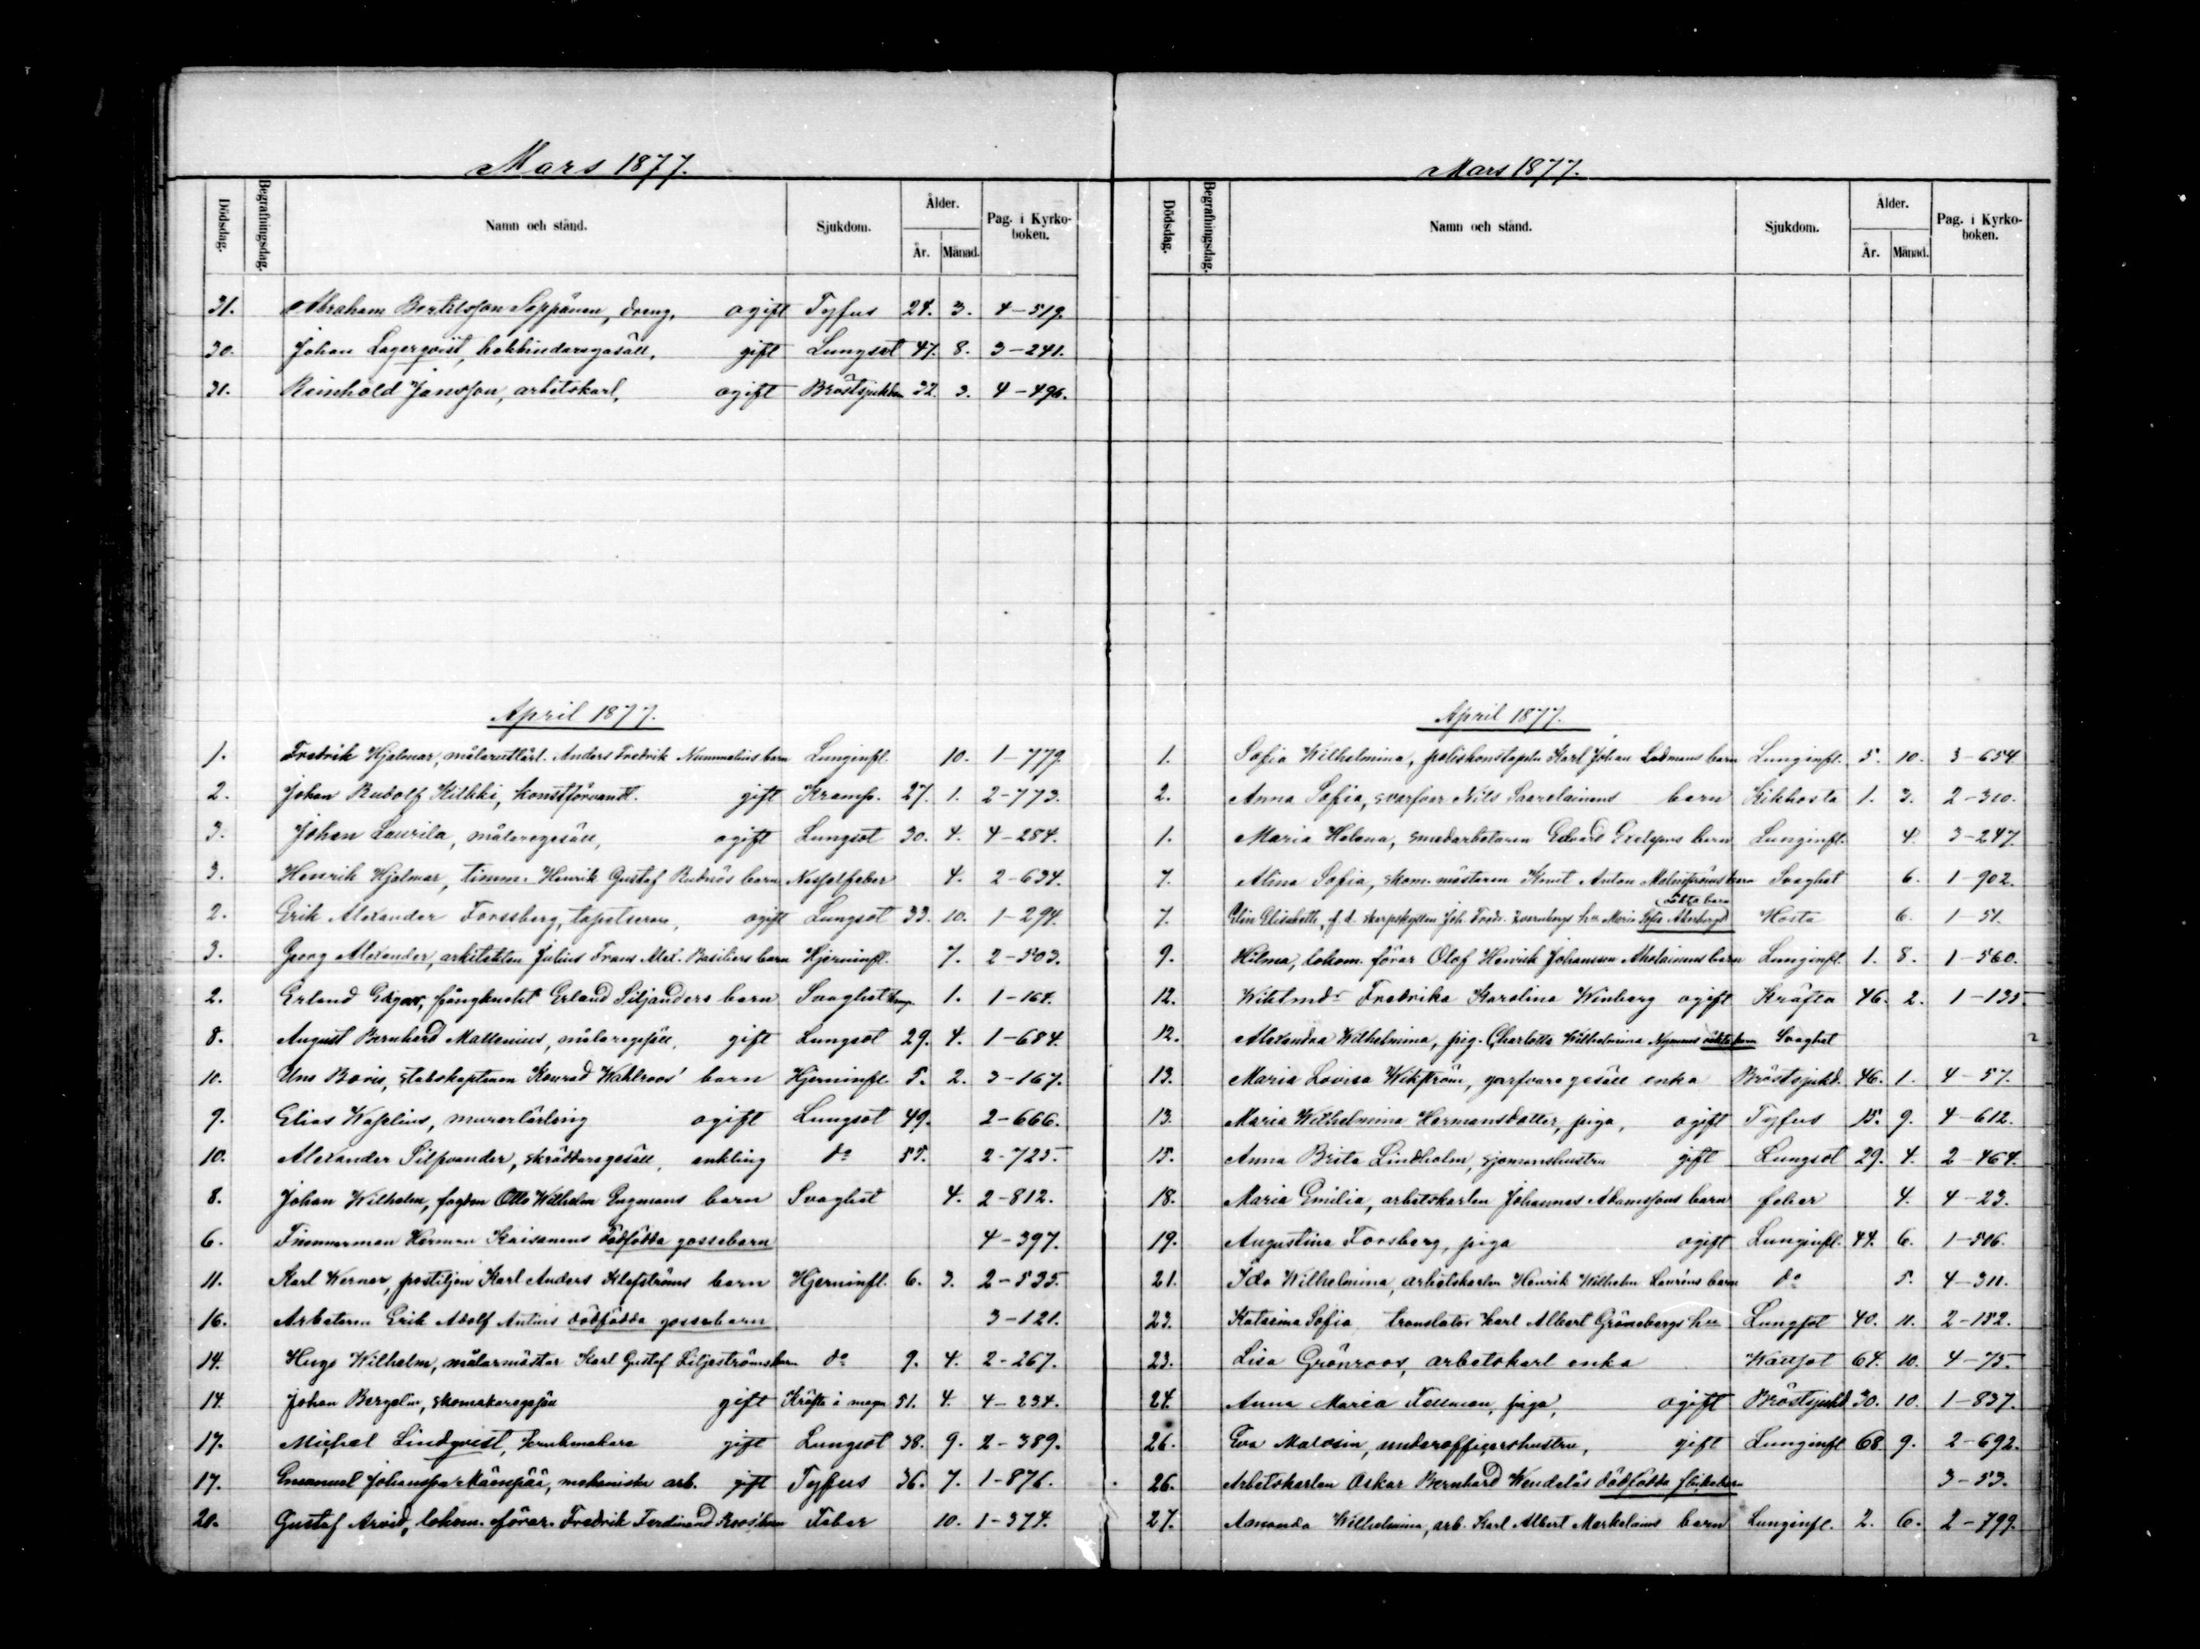 Mars 1877.
Dödsdag. Begrafningsdag. Namn och stånd. Sjukdom. Ålder. År. Månad. Pag. i Kyrko-boken.
31. Abraham Bertilsson Seppänen, dreng, ogift Tyfus 24. 3. 4-519.
30. Johan Lagerqvist, bokbindaregesäll, gift Lungsot 47. 8. 3-241.
31. Reinhold Jansson, arbetskarl, ogift Bröstsjukdom 32. 3. 4-496.
April 1877.
1. Fredrik Hjalmar, Anders Fredrik Nummelins barn Lunginfl. 10. 1-779.
2. Johan Rudolf Kilkki, konstförvandt. gift Kramp. 27. 1. 2-773.
3. Johan Laurila, målaregesäll, ogift Lungsot 30. 4. 4-284.
3. Henrik Hjalmar, timm. Henrik Gustaf Rudnäs barn 4. 2-634.
2. Erik Alexander Forssberg, tapetserare, ogift Lungsot 33. 10. 1-294.
3. Georg Alexander, arkitekten Julius Frans Alex. Basiliers barn Hjerninfl. 7. 2-503.
2. Erland Edgar, Erland Siljanders barn Svaghet 1. 1-164.
8. August Bernhard Mattenius, målaregesäll, gift Lungsot 29. 4. 1-684.
10. Uno Boris, stabskaptenen Konrad Wahlroos' barn Hjerninfl. 5. 2. 3-167.
9. Elias Wafelius, murarlärling ogift Lungsot 49. 2-666.
10. Alexander Silfvander, skräddaregesäll, enkling do 55. 2-725.
8. Johan Wilhelm, fogden Otto Wilhelm Engmans barn Svaghet 4. 2-812.
6. Timmerman Herman Kaisanens dödfödda gossebarn 4-397.
11. Karl Werner, postiljon Karl Anders Klefströms barn Hjerninfl. 6. 3. 2-535.
16. Arbetaren Erik Adolf Antins dödfödda gossebarn 3-121.
14. Hugo Wilhelm, målarmäster Karl Gustaf Liljeströms barn do 9. 4. 2-267.
14. Johan Bergelin, skomakaregesäll gift Kräfta i magen 51. 4. 4-234.
17. Michel Lindqvist, gift Lungsot 38. 9. 2-389.
17. Emanuel Johansson Mäenpää, mekaniske arb. gift Tyfus 36. 7. 1-876.
20. Gustaf Arvid, lokom. förar. Fredrik Ferdinand Roos' barn Feber 10. 1-374.
Mars 1877.
Dödsdag. Begrafningsdag. Namn och stånd. Sjukdom. Ålder. År. Månad. Pag. i Kyrko-boken.
April 1877.
1. Sofia Wilhelmina, poliskonstapeln Karl Johan Ladmans barn Lunginfl. 5. 10. 3-654
2. Anna Sofia, svarfvar Nils Saarelainens barn Kikhosta 1. 3. 2-310.
1. Maria Helena, smedarbetaren Edvard barn Lunginfl. 4. 3-247
7. Alina Sofia, skom. mästaren Knut Anton Malmströms barn Svaghet 6. 1-902.
oäkta barn
7. Elin Elisabeth, f.d. skarpskytten Joh. Fredr. hu Maria Sofia Åkerbergs Hosta 6. 1-51.
9. Hilma, lokom. förar Olof Henrik Johansson Aholainens barn Lunginfl. 1. 8. 1-560.
12. Fredrika Karolina Winberg ogift Kräfta 46. 2. 1-135
12. Alexandra Wilhelmina, pig. Charlotta Wilhelmina Nymans oäkta barn Svaghet
13. Maria Lovisa Wikström, garfvaregesäll enka Bröstsjukd. 46. 1. 4-57.
13. Maria Wilhelmina Hermansdotter, piga, ogift Tyfus 15. 9. 4-612.
15. Anna Brita Lindholm, sjömanshustru gift Lungsot 29. 4. 2-464.
18. Maria Emilia, arbetskarlen Johannes Adamssons barn feber 4. 4-23.
19. Augustina Forsberg, piga ogift Lunginfl. 44. 6. 1-506.
21. Ida Wilhelmina, arbetskarlen Henrik Wilhelm Laurens barn do 5. 4-311.
23. Katarina Sofia translator Karl Albert Grönebergs hu Lungsot 40. 11. 2-152.
23. Lisa Grönroos, arbetskarl enka Wattsot 64. 10. 4-75
24. Anna Maria Fellman, piga, ogift Bröstsjukd 30. 10. 1-837.
26. Eva Malosin, underofficershustru, gift Lunginfl 68. 9. 2-692.
26. Arbetskarlen Oskar Bernhard Wendelås dödfödda flickebarn 3-53.
27. Amanda Wilhelmina, arb. Karl Albert Markelains barn Lunginfl. 2. 6. 2-799.